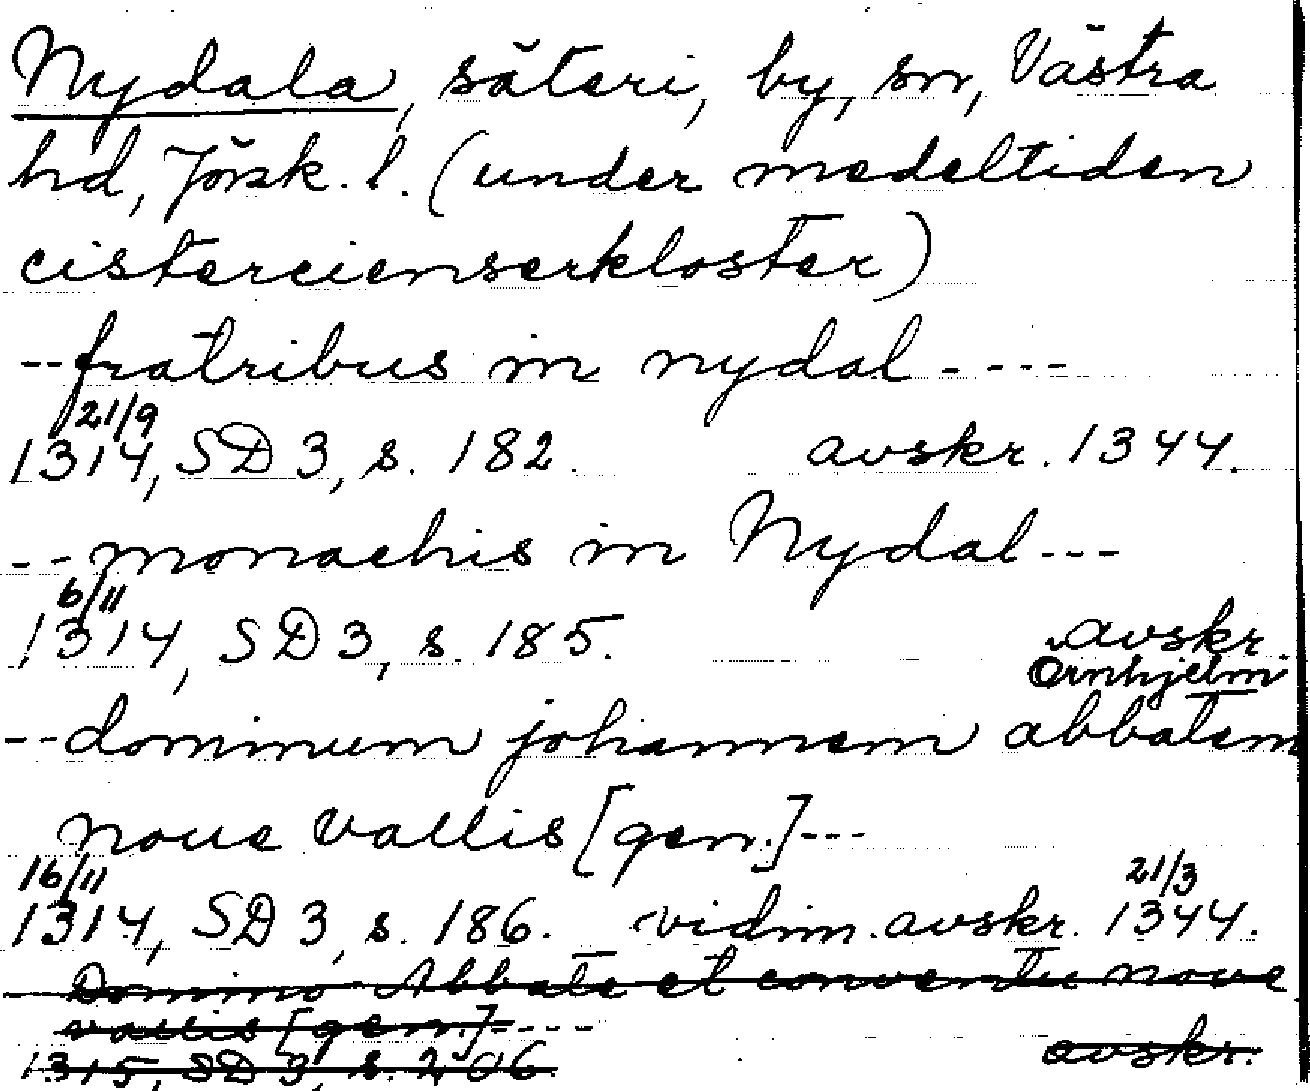 Nydala, säteri, by, sn, Västra
hd, Jönk. l. (under medeltiden
cistercienserkloster)
--fratribus in nydal----
21/9
1314, SD 3, s. 182. avskr. 1344.
--monachis in Nydal---
6/11
1314, SD 3, s. 185. avskr.
Örnhjelm
--dominum johannem abbatem
noue vallis [gen.]---
16/11 21/3
1314, SD 3, s. 186. vidim. avskr. 1344.
Domino Abbate et conventu nove
vallis [gen.]----
1315, SD 3, s. 206. avskr.